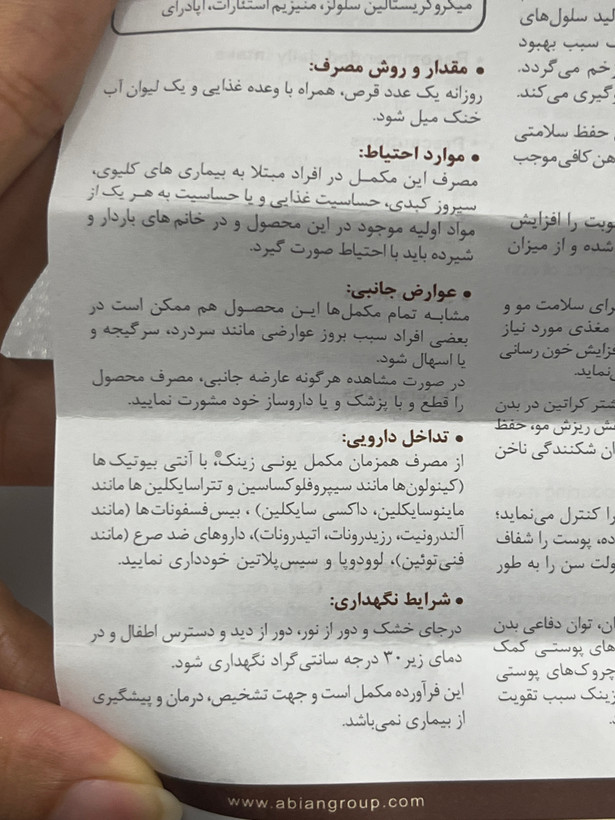 میکروکریستالین سلولز، منیزیم استئارات، اپادرای
• مقدار و روش مصرف:
روزانه یک عدد قرص، همراه با وعده غذایی و یک لیوان آب
خنک میل شود.
• موارد احتیاط:
مصرف این مکمل در افراد مبتلا به بیماری های کلیوی،
سیروز کبدی، حساسیت غذایی و یا حساسیت به هر یک از
مواد اولیه موجود در این محصول و در خانم های باردار و
شیرده باید با احتیاط صورت گیرد.
• عوارض جانبی:
مشابه تمام مکمل‌ها این محصول هم ممکن است در
بعضی افراد سبب بروز عوارضی مانند سردرد، سرگیجه و
یا اسهال شود.
در صورت مشاهده هرگونه عارضه جانبی، مصرف محصول
را قطع و با پزشک و یا داروساز خود مشورت نمایید.
• تداخل دارویی:
از مصرف همزمان مکمل یونی زینک®، با آنتی بیوتیک ها
(کینولون‌ها مانند سیپروفلوکساسین و تتراسایکلین ها مانند
ماینوسایکلین، داکسی سایکلین) ، بیس‌فسفونات‌ها (مانند
آلندرونیت، رزیدرونات، اتیدرونات)، داروهای ضد صرع (مانند
فنی‌توئین)، لوودوپا و سیس‌پلاتین خودداری نمایید.
• شرایط نگهداری:
درجای خشک و دور از نور، دور از دید و دسترس اطفال و در
دمای زیر ۳۰ درجه سانتی‌گراد نگهداری شود.
این فرآورده مکمل است و جهت تشخیص، درمان و پیشگیری
از بیماری نمی‌باشد.
لید سلول‌های
سبب بهبود
خم می‌گردد.
گیری می‌کند.
حفظ سلامتی
هن کافی موجب
وبت را افزایش
شده و از میزان
رای سلامت مو و
مغذی مورد نیاز
فزایش خون رسانی
نماید.
شتر کراتین در بدن
ش ریزش مو، حفظ
ان شکنندگی ناخن
را کنترل می‌نماید؛
ده، پوست را شفاف
ولت سن را به طور
ان، توان دفاعی بدن
های پوستی کمک
چروک‌های پوستی
زینک سبب تقویت
www.abiangroup.com